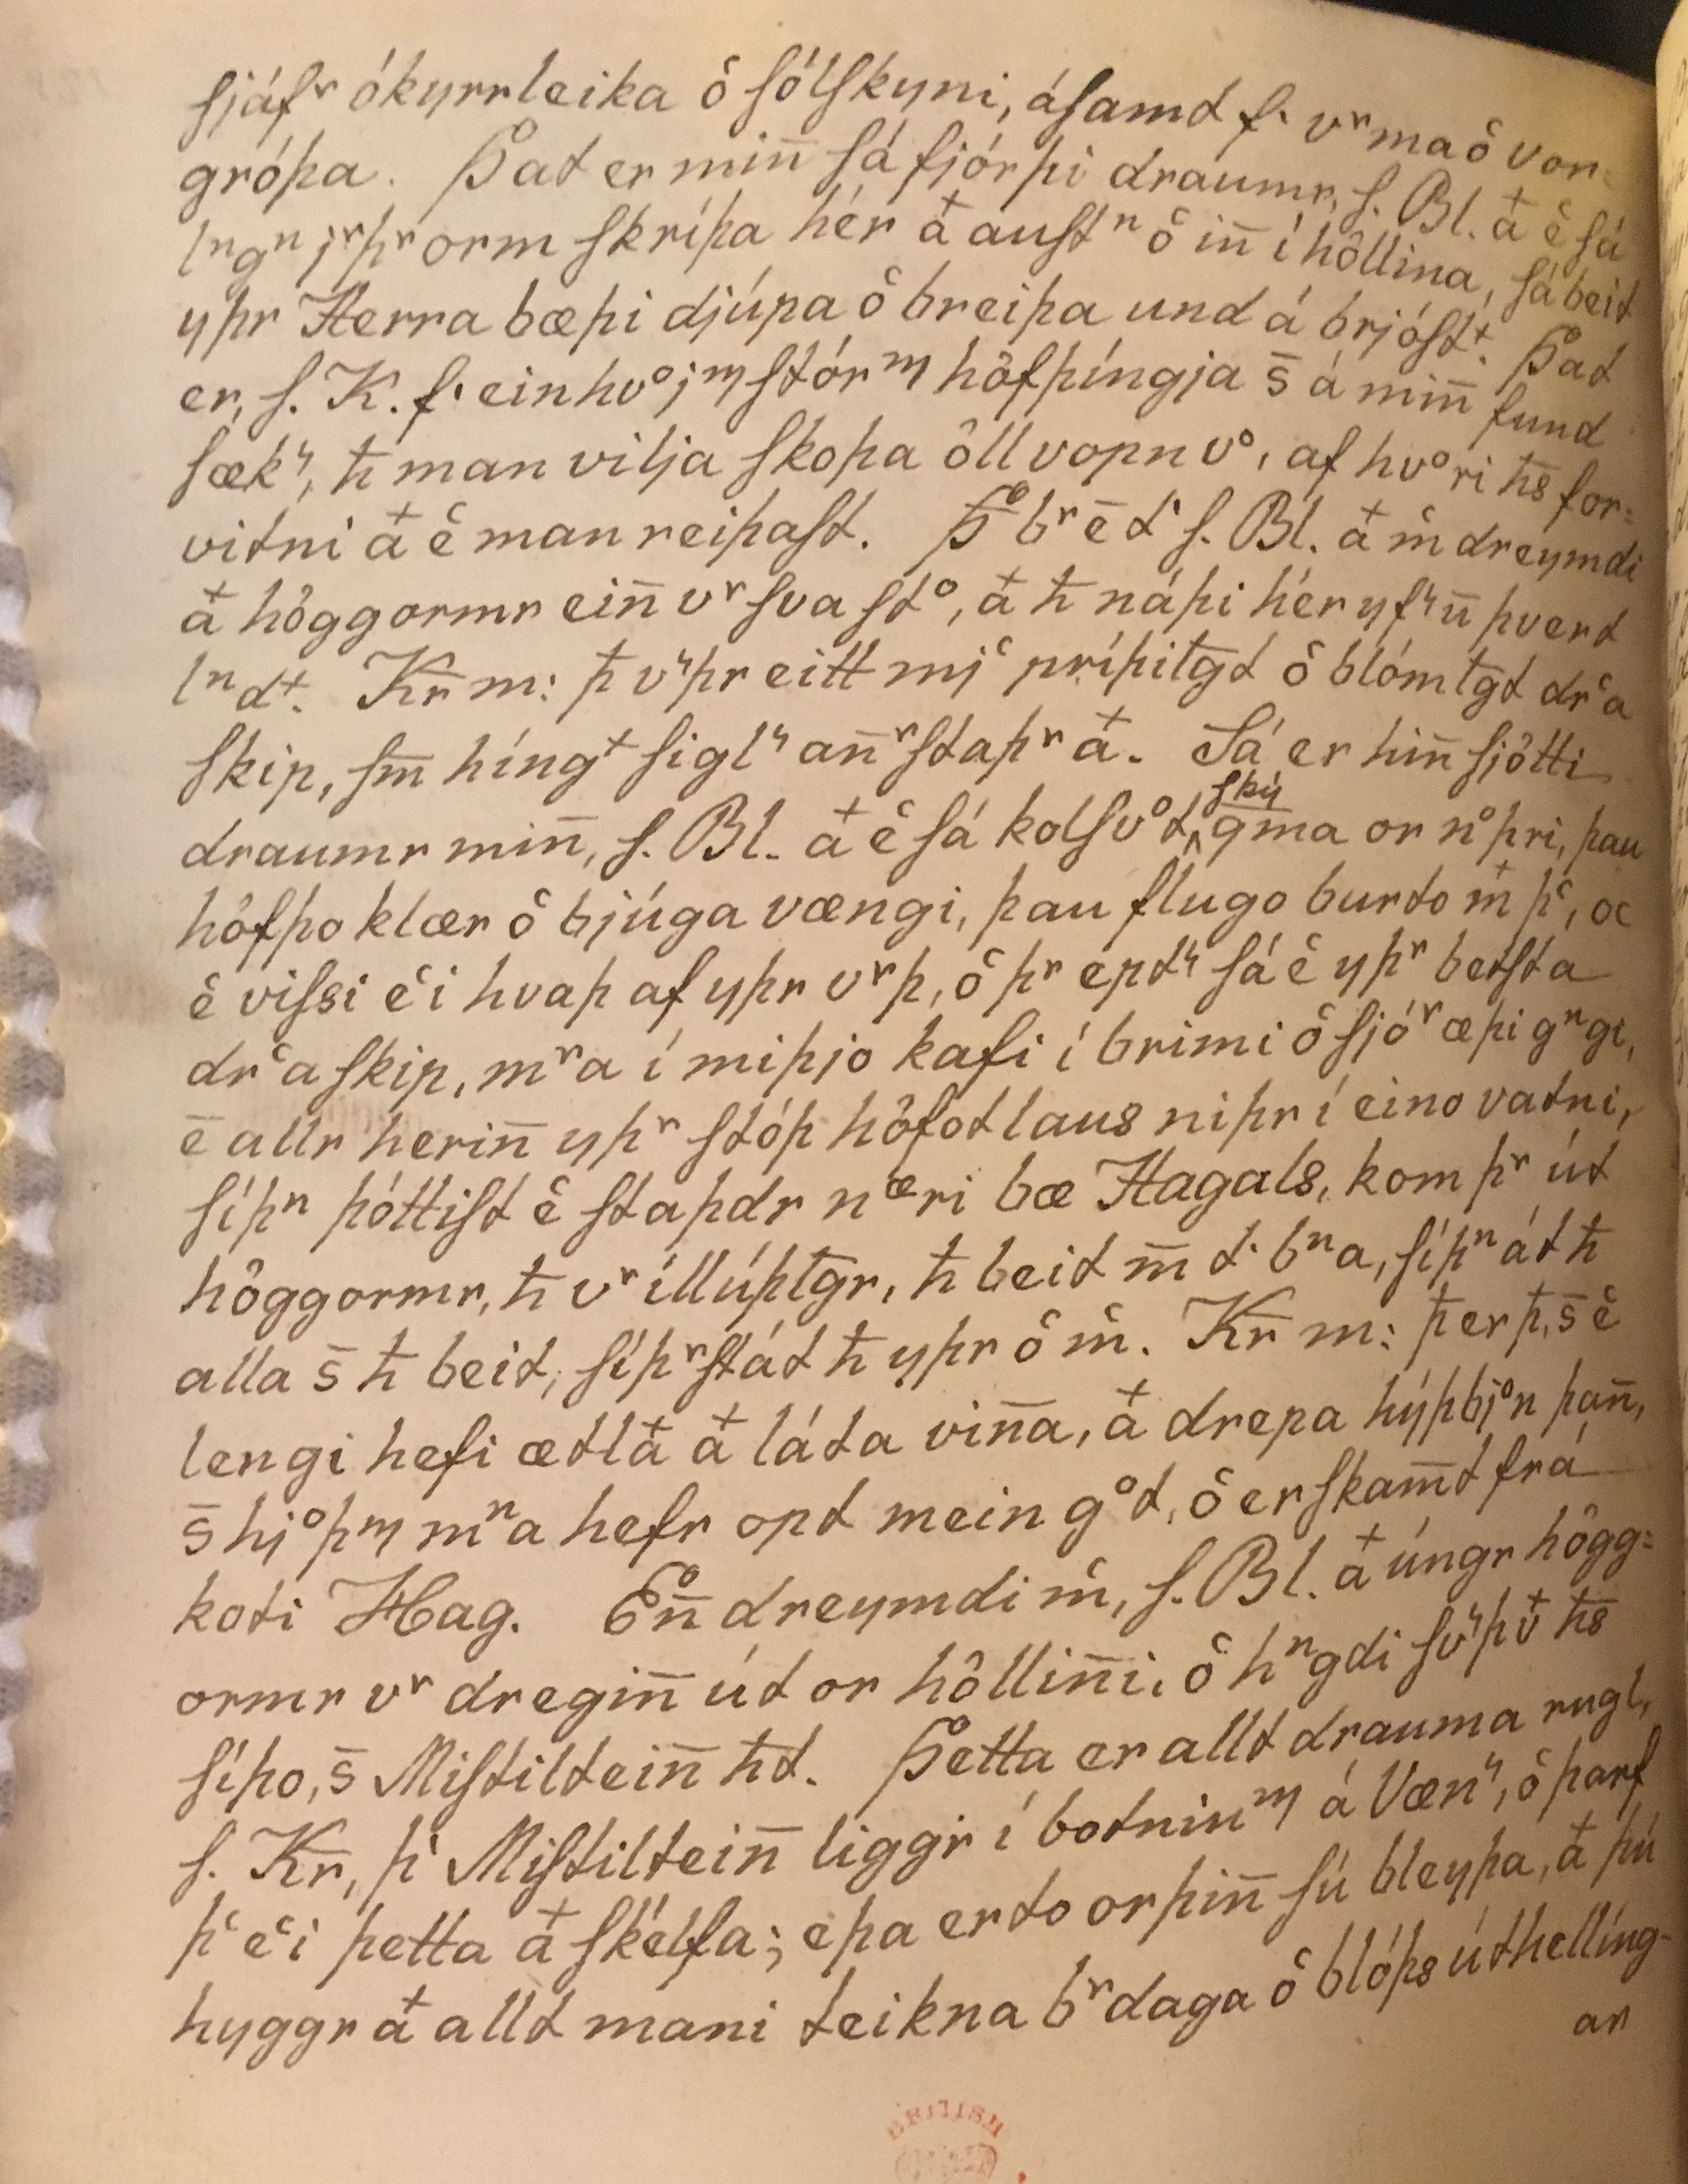 sjáfʳ ókyrrleika ô sólskyni, ásamt f· vʳma ô vor⸗
gróþa. Þat er min̄ sá fjórþi draumr, s. Bl. a᷎ͭ ê sá
lⁿgⁿ jʳþʳ orm skríþa hér aͭ austⁿ ô in̄ í hôllina, sá beit
yþr Herra bæþi djúpa ô breiþa und á brjóstͭ. Þat
er, s. K. f· einhvºjᵐ stórᵐ hôfþíngja s̄ á min̄ fund
sæk᷑, ħ man vilja skoþa ôll vopn vº, af hvºri ħs for⸗
vitni aͭ ê man reiþast. Þº bʳ ē t· s. Bl. aͭ m̂ dreymdi
aͭ hôggormr ein̄ vʳ sva stº, aͭ ħ náþi hér yf᷑ ū þvert
lⁿdͭ. Kr̄ m: ꝥ v᷑þr eitt mjͨ príþiłgt ô blómłgt drͨa
skip, sm̄ híngͭ sigl᷑ an̄ʳstaþʳ aͭ. Sá er hin̄ sjôtti
draumr min̄, s. Bl. aͭ ê sá kolsvºt ‸ský gm̄a or nºþri, þau
hôfþo klær ô bjúga vængi, þau flugo burto mͭ þͨ, oc
ê vissi êͨi hvaþ af yþr vʳþ, ô þʳ ept᷑ sá ê yþʳ betsta
drͨa skip, mʳa í miþjo kafi í brimi ô sjóʳ æþi gⁿgi,
ē allr herin̄ yþʳ stóþ hôfotlaus niþr í eino vatni,
síþⁿ þóttist ê staþdr næri bæ Hagals, kom þʳ út
hôggormr, ħ vʳ illúþłgr, ħ beit m̄ t· bⁿa, síþⁿ át ħ
alla s̄ ħ beit, síþʳst át ħ yþr ô m̂. Kr̄ m: ꝥ er ꝥ, s̄ ê
lengi hefi ætlaͭ aͭ láta vin̄a, aͭ drepa hýþbjºn þan̄,
s̄ hjºþᵐ mⁿa hefr opt mein gºt, ô er skam̄t frá
koti Hag. Eºn̄ dreymdi m̂, s. Bl. aͭ úngr hôgg⸗
ormr vʳ dregin̄ út or hôllin̄i, ô hⁿgdi sv᷑þ vͭ ħs
síþo, s̄ Mistiltein̄ ħt. Þetta er allt drauma rugl,
s. Kr̄, þͥ Mistiltein̄ liggr í botninᵐ á Væn᷑, ô þarf
þͨ êͨi þetta aͭ skélfa; eþa erto orþin̄ sú bleyþa, aͭ þú
hyggr aͭ allt mani teikna bʳdaga ô blóþs úthellíng-
ar